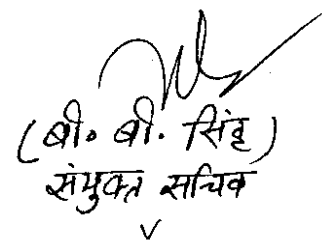 (बी० बी. सिंह)
संयुक्त सचिव